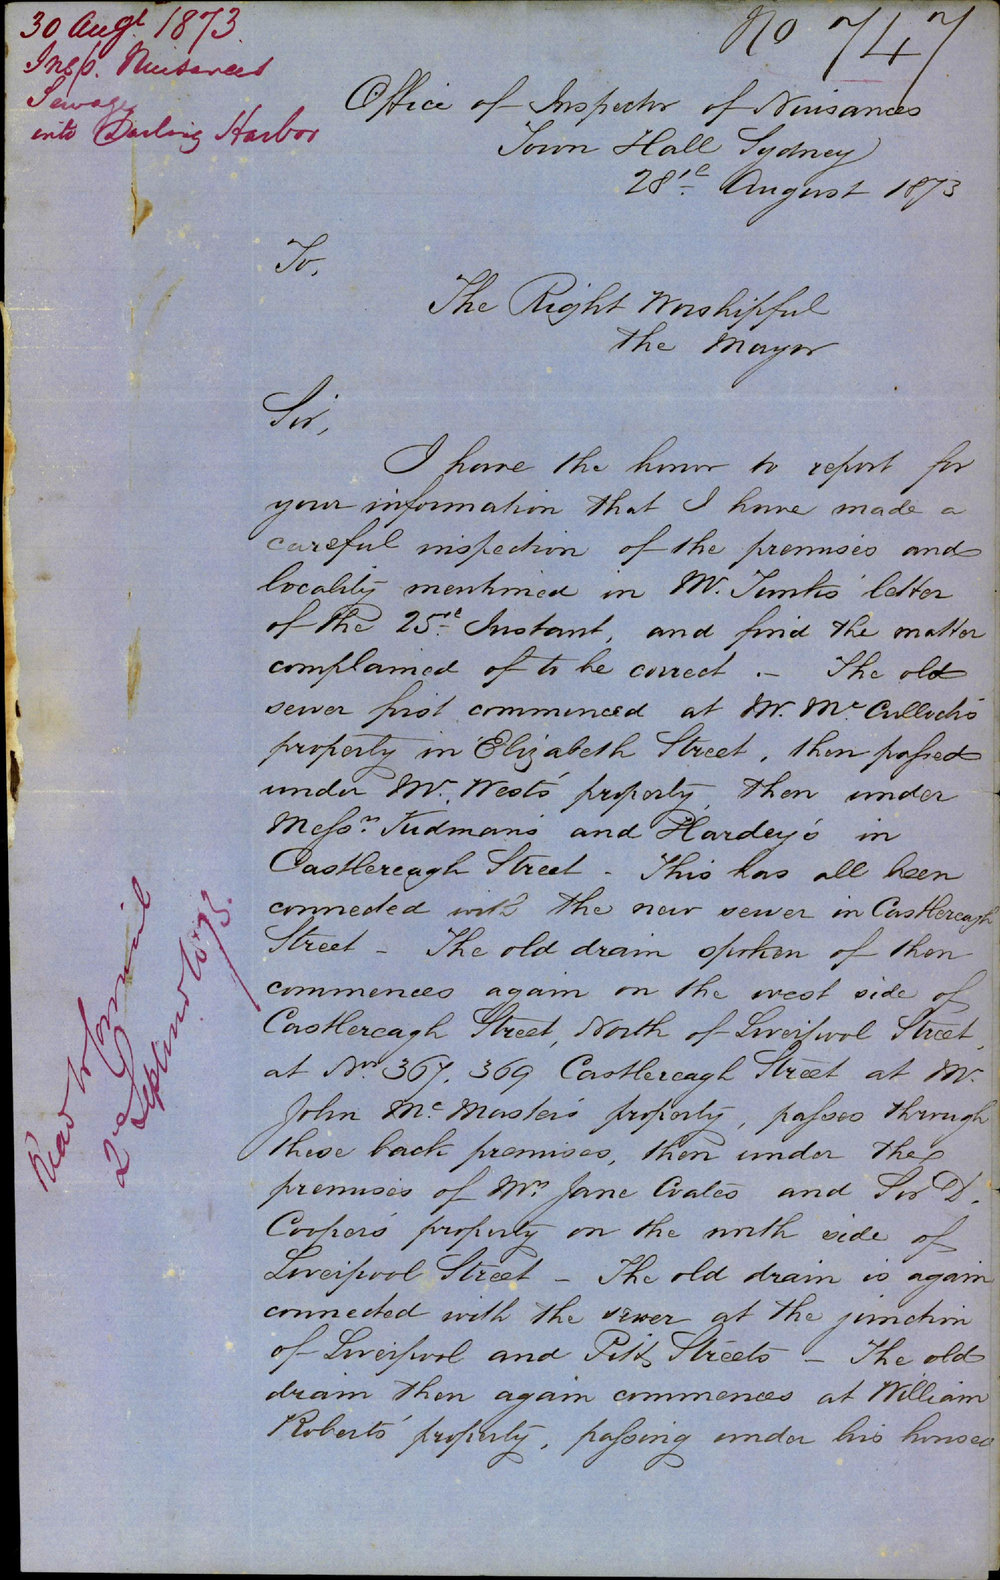 30 Augt 1873
Insp. Nuisances
Sewage
into Darling Harbor
No 747
Office of Inspector of Nuisances
Town Hall Sydney
28th August 1873
To,
The Right Worshipful
the Mayor
Sir,
I have the honor to report for
your information that I have made a
careful inspection of the premises and
locality mentioned in Mr. Tunks' letter
of the 25th Instant, and find the matter
complained of to be correct. - The old
sewer first commenced at Mr. McCulloch's
property in Elizabeth Street, then passed
under Mr. West's property, then under
Messrs. Kidman's and Hardey's in
Castlereagh Street - This has all been
connected with the new sewer in Castlereagh
Street - The old drain spoken of then
commences again on the west side of
Castlereagh Street, North of Liverpool Street,
at Nos 367. 369 Castlereagh Street at Mr.
John McMaster's property, passes through
these back premises, then under the
premises of Mrs Jane Coates and Sir D.
Cooper's property on the north side of
Liverpool Street - The old drain is again
connected with the sewer at the junction
of Liverpool and Pitt Streets - The old
drain then again commences at William
Roberts' property, passing under his houses
Read to Council
2d September 1873.